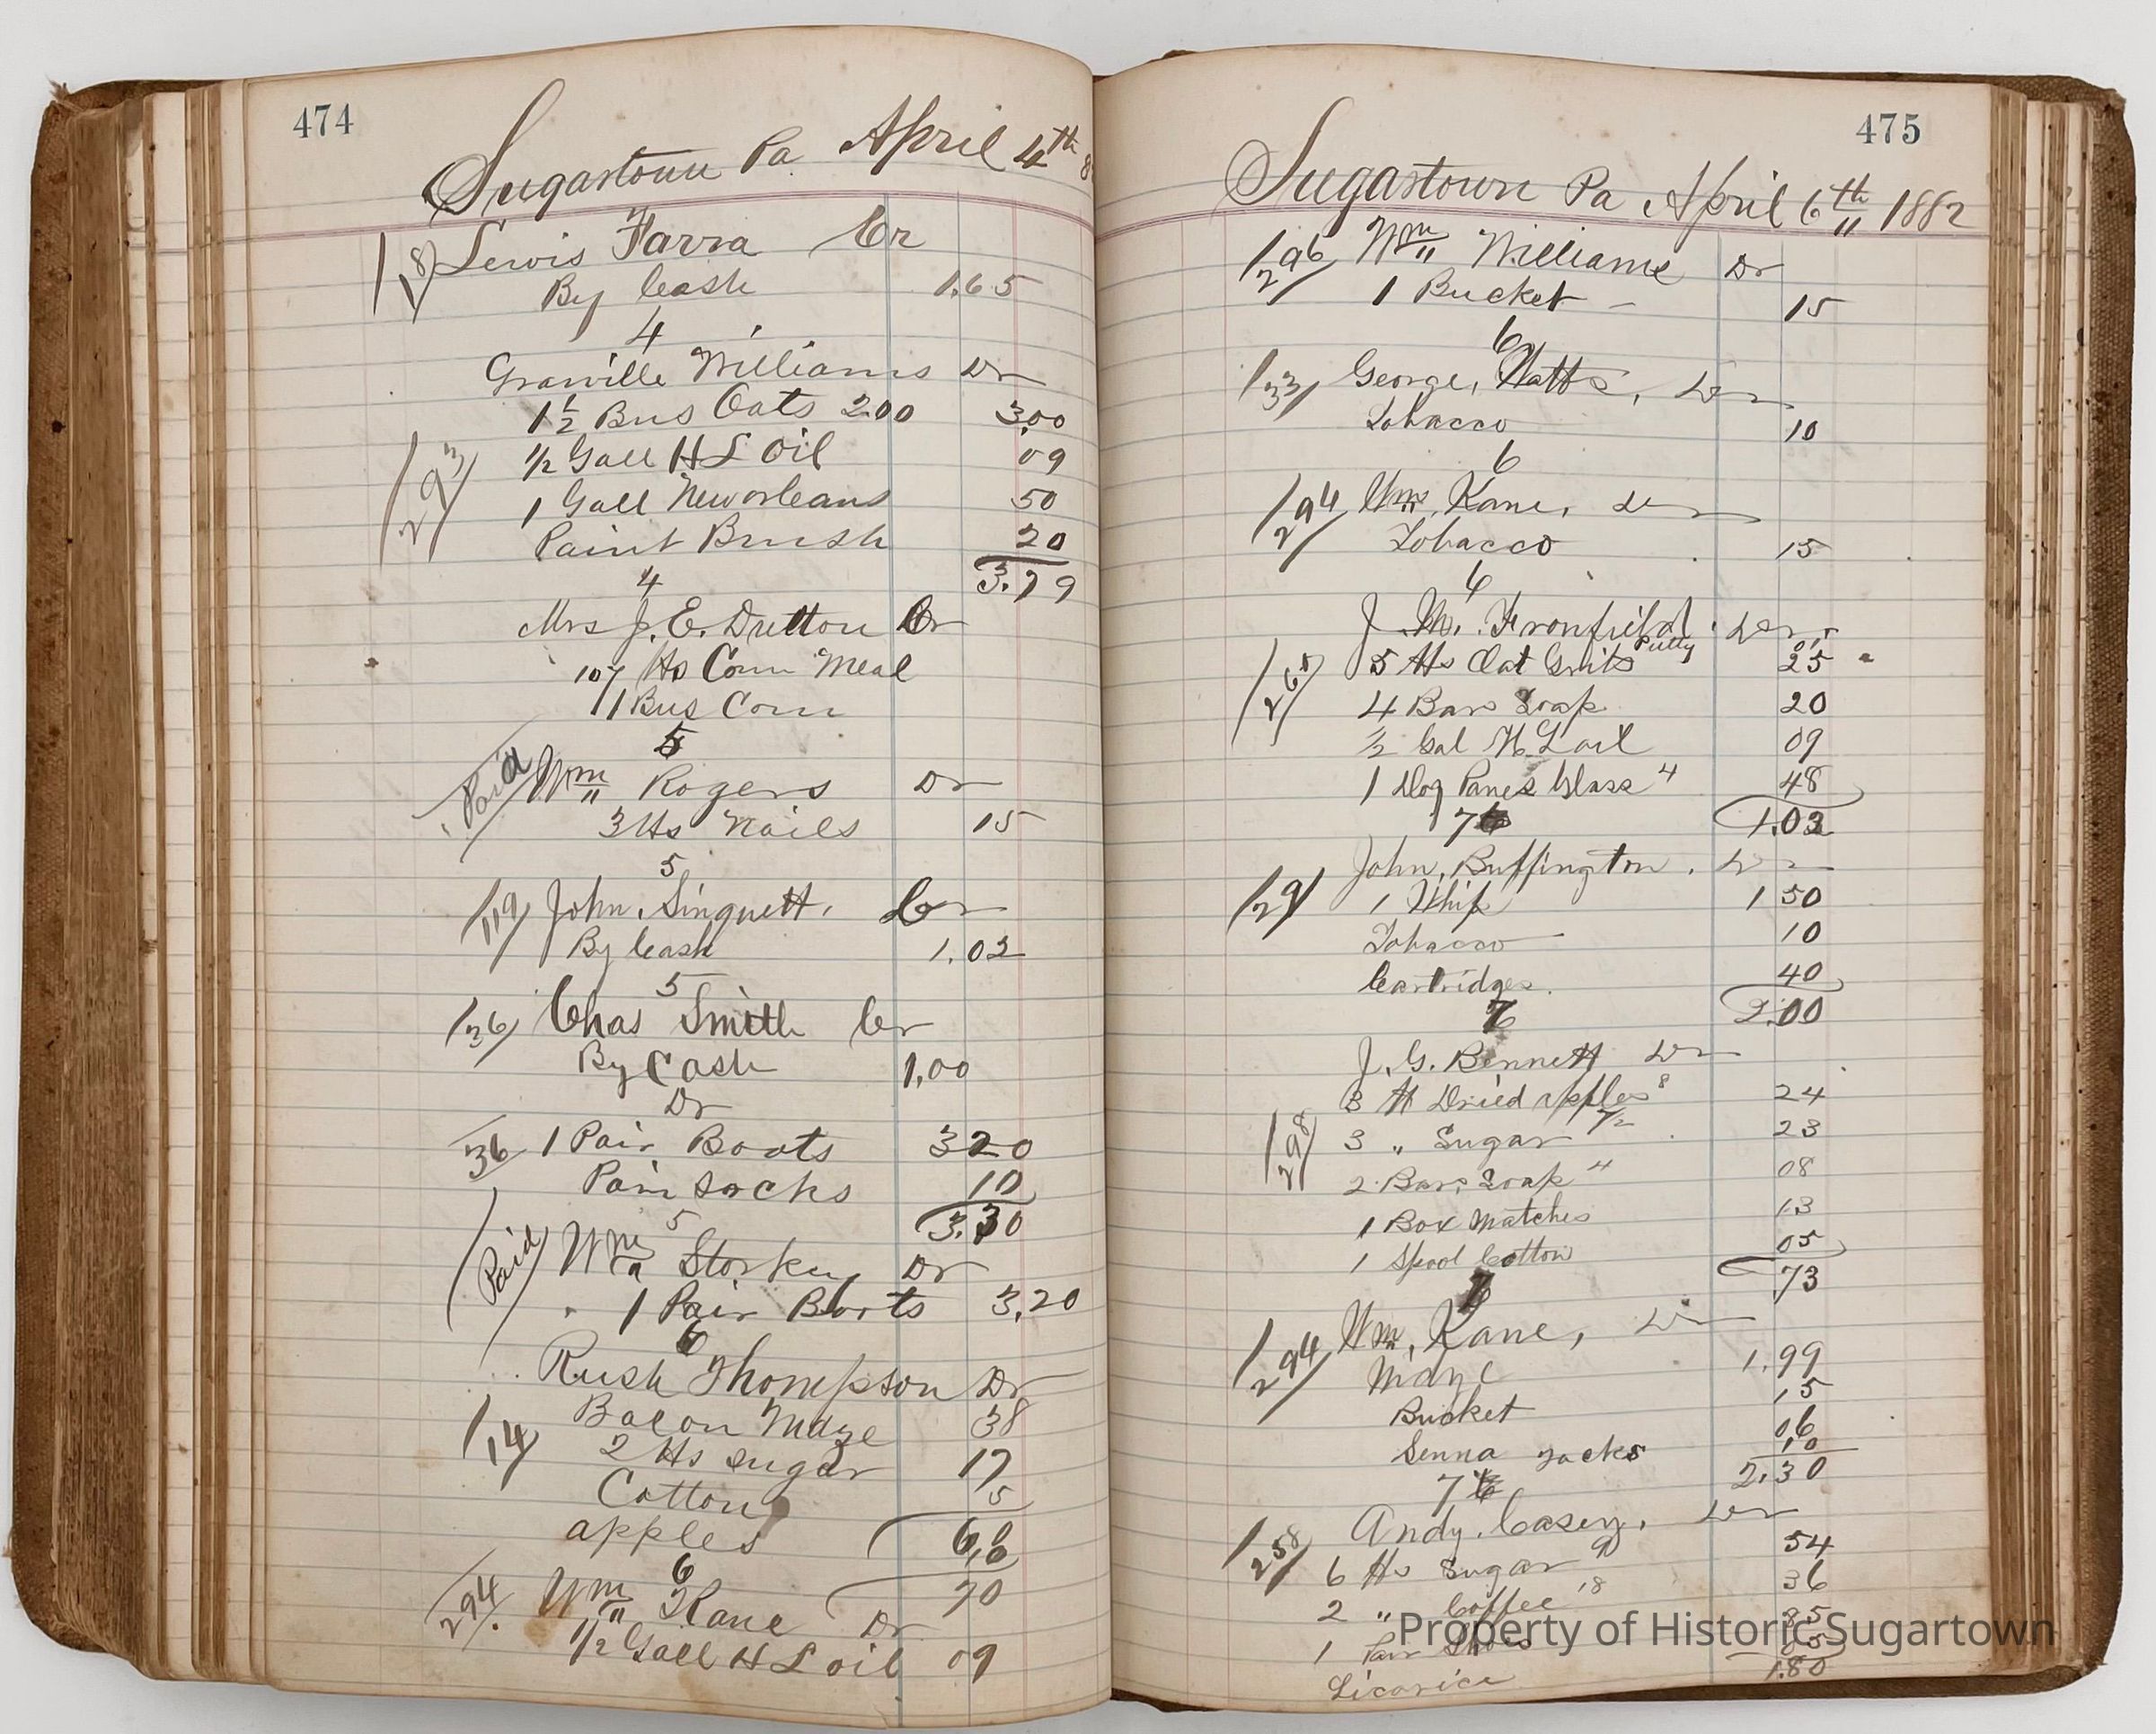 474
Sugartown Pa April 4th 8
18 Lewis Farra Cr
By Cash 1.65
4
Granville Williams Dr
1 1/2 Bus Oats 2.00 3.00
293 1/2 Gall H L Oil 09
1 Gall New orleans 50
Paint Brush 20
3.79
4
Mrs J. E. Dutton Cr
107 lbs Corn Meal
1 Bus Corn
5
Paid Wm Rogers Dr
3 lbs Nails 15
5
119 John. Singuett. Cr
By Cash 1.02
5
36 Chas Smith Cr
By Cash 1,00
Dr
36 1 Pair Boots 320
Pair Socks 10
3.30
5
Paid Wm Storkey Dr
1 Pair Boots 3,20
6
Rush Thompson Dr
Bacon Mdze 38
14 2 lbs Sugar 17
Cotton 5
apples 6
70
6
294 Wm Kane Dr
1/2 Gall H L oil 09
475
Sugartown Pa April 6th 1882
296 Wm Williams Dr
1 Bucket 15
6
33 George, Watts, Dr
Tobacco 10
6
294 Wm, Kane, Dr
Tobacco 15
6
J. M. Fronfield. Dr
Putty 01
265 5 lbs Oat Grits 25
4 Bars Soap 20
1/2 Gal H L oil 09
1 Doz Panes Glass 4 48
7 1.03
John, Buffington. Dr
29 1 Whip 1 50
Tobacco 10
Cartridges. 40
7 2.00
J. G. Bennett Dr
3 lb Dried apples 8 24
298 3 " Sugar 7 1/2 23
2 Bars Soap 4 08
1 Box Matches 13
1 Spool Cotton 05
7 73
294 Wm, Kane, Dr
Mdze 1.99
Bucket 15
Senna 06
Jacks 10
7 2.30
Andy. Casey, Dr
258 6 lbs Sugar 9 54
2 " Coffee 18 36
1 Pair Shoes 85
Licorice 05
1.80
Property of Historic Sugartown